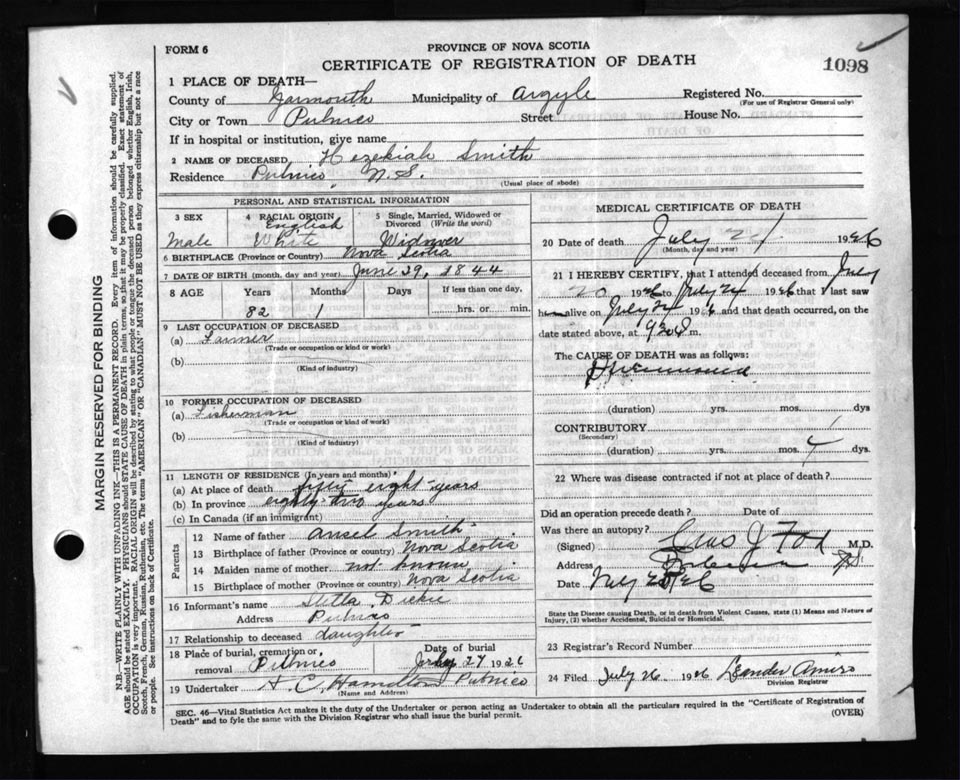 FORM 6
PROVINCE OF NOVA SCOTIA
CERTIFICATE OF REGISTRATION OF DEATH
1098
1 PLACE OF DEATH—
County of Yarmouth Municipality of Argyle Registered No.
(For use of Registrar General only)
City or Town Pubnico Street House No.
If in hospital or institution, give name
2 NAME OF DECEASED Hezekiah Smith
Residence Pubnico N.S.
(Usual place of abode)
PERSONAL AND STATISTICAL INFORMATION
3 SEX 4 RACIAL ORIGIN 5 Single, Married, Widowed or Divorced (Write the word)
Male English White Widower
6 BIRTHPLACE (Province or Country) Nova Scotia
7 DATE OF BIRTH (month, day and year) June 29, 1844
8 AGE Years Months Days If less than one day,
82 1 hrs. or min.
9 LAST OCCUPATION OF DECEASED
(a) Farmer
(Trade or occupation or kind or work)
(b)
(Kind of industry)
10 FORMER OCCUPATION OF DECEASED
(a) Fisherman
(Trade or occupation or kind or work)
(b)
(Kind of industry)
11 LENGTH OF RESIDENCE (In years and months)
(a) At place of death fifty eight years
(b) In province eighty-two years
(c) In Canada (if an immigrant)
Parents
12 Name of father Ansel Smith
13 Birthplace of father (Province or country) Nova Scotia
14 Maiden name of mother not known
15 Birthplace of mother (Province or country) Nova Scotia
16 Informant's name Dickie
Address Pubnico
17 Relationship to deceased daughter
18 Place of burial, cremation or removal Pubnico
Date of burial July 27 1926
19 Undertaker A. C. Hamilton Pubnico
(Name and Address)
MEDICAL CERTIFICATE OF DEATH
20 Date of death July 1926
(Month, day and year)
21 I HEREBY CERTIFY, that I attended deceased from July
20 1926 to July 24 1926 that I last saw
h alive on July 24 1926 and that death occurred, on
date stated above, at m.
The CAUSE OF DEATH was as follows:
(duration) yrs. mos. dys
CONTRIBUTORY
(Secondary)
(duration) yrs. mos. 4 dys.
22 Where was disease contracted if not at place of death?
Did an operation precede death? Date of
Was there an autopsy?
(Signed) J Fox M.D.
Address Pubnico N.S.
Date July 1926
State the Disease causing Death, or in death from Violent Causes, state (1) Means and Nature of
Injury, (2) whether Accidental, Suicidal or Homicidal.
23 Registrar's Record Number
24 Filed July 26 1926 Leander Amiro
Division Registrar
SEC. 46—Vital Statistics Act makes it the duty of the Undertaker or person acting as Undertaker to obtain all the particulars required in the "Certificate of Registration of
Death" and to fyle the same with the Division Registrar who shall issue the burial permit.
(OVER)
MARGIN RESERVED FOR BINDING
N.B.—WRITE PLAINLY, WITH UNFADING INK—THIS IS A PERMANENT RECORD. Every item of information should be carefully supplied.
AGE should be stated EXACTLY. PHYSICIANS should STATE CAUSE OF DEATH in plain terms, so that it may be properly classified. Exact statement of
OCCUPATION is very important. RACIAL ORIGIN will be described by stating to what people or tongue the deceased person belonged, whether English, Irish,
Scotch, French, German, Russian, Ruthenian, etc. The terms "AMERICAN" OR "CANADIAN" MUST NOT BE USED as they express citizenship but not a race
or people. See instructions on back of Certificate.